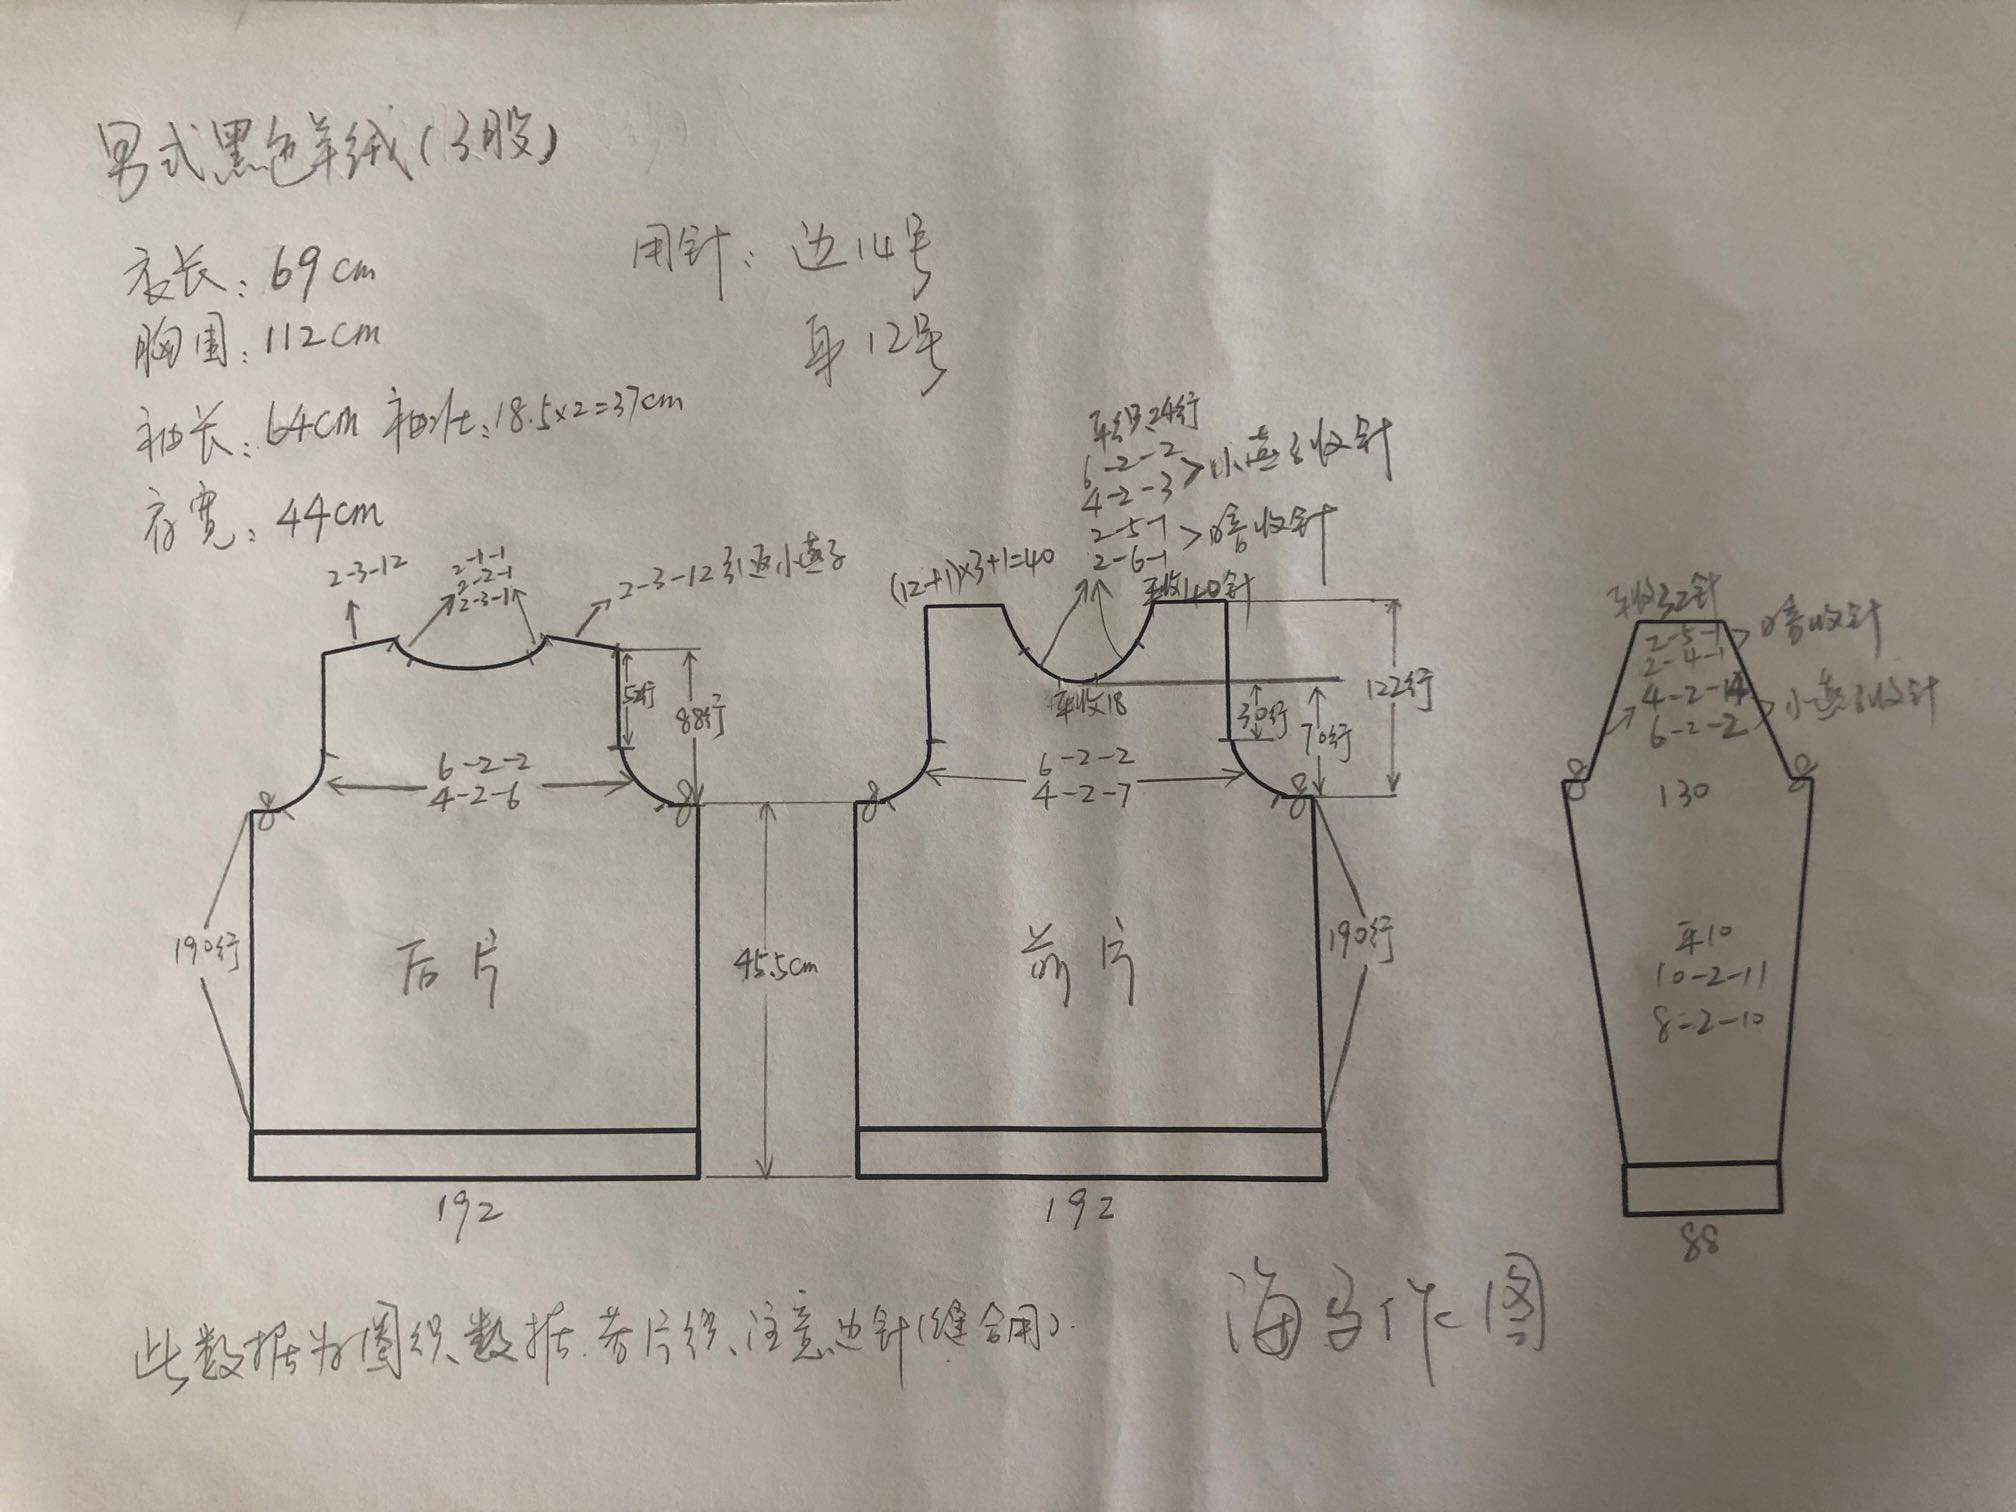 男式黑色羊绒(3股)
衣长:69cm
用针:边14号
胸围:112cm
身12号
袖长:64cm 袖壮:18.5×2=37cm
衣宽:44cm
平织24行
6-2-2
4-2-3
>小燕子收针
2-5-1
2-6-1
>暗收针
2-3-12
2-1-1
2-2-1
2-3-1
2-3-12引返小燕子
(12+1)×3+1=40
平收40针
52行
88行
6-2-2
4-2-6
8
8
190行
后片
192
45.5cm
平收18
30行
70行
122行
6-2-2
4-2-7
8
8
前片
190行
192
平收32针
2-5-1
2-4-1
>暗收针
4-2-14
6-2-2
>小燕子收针
8
8
130
平10
10-2-11
8-2-10
88
此数据为圈织数据.若片织、注意边针(缝合用).
海马作图